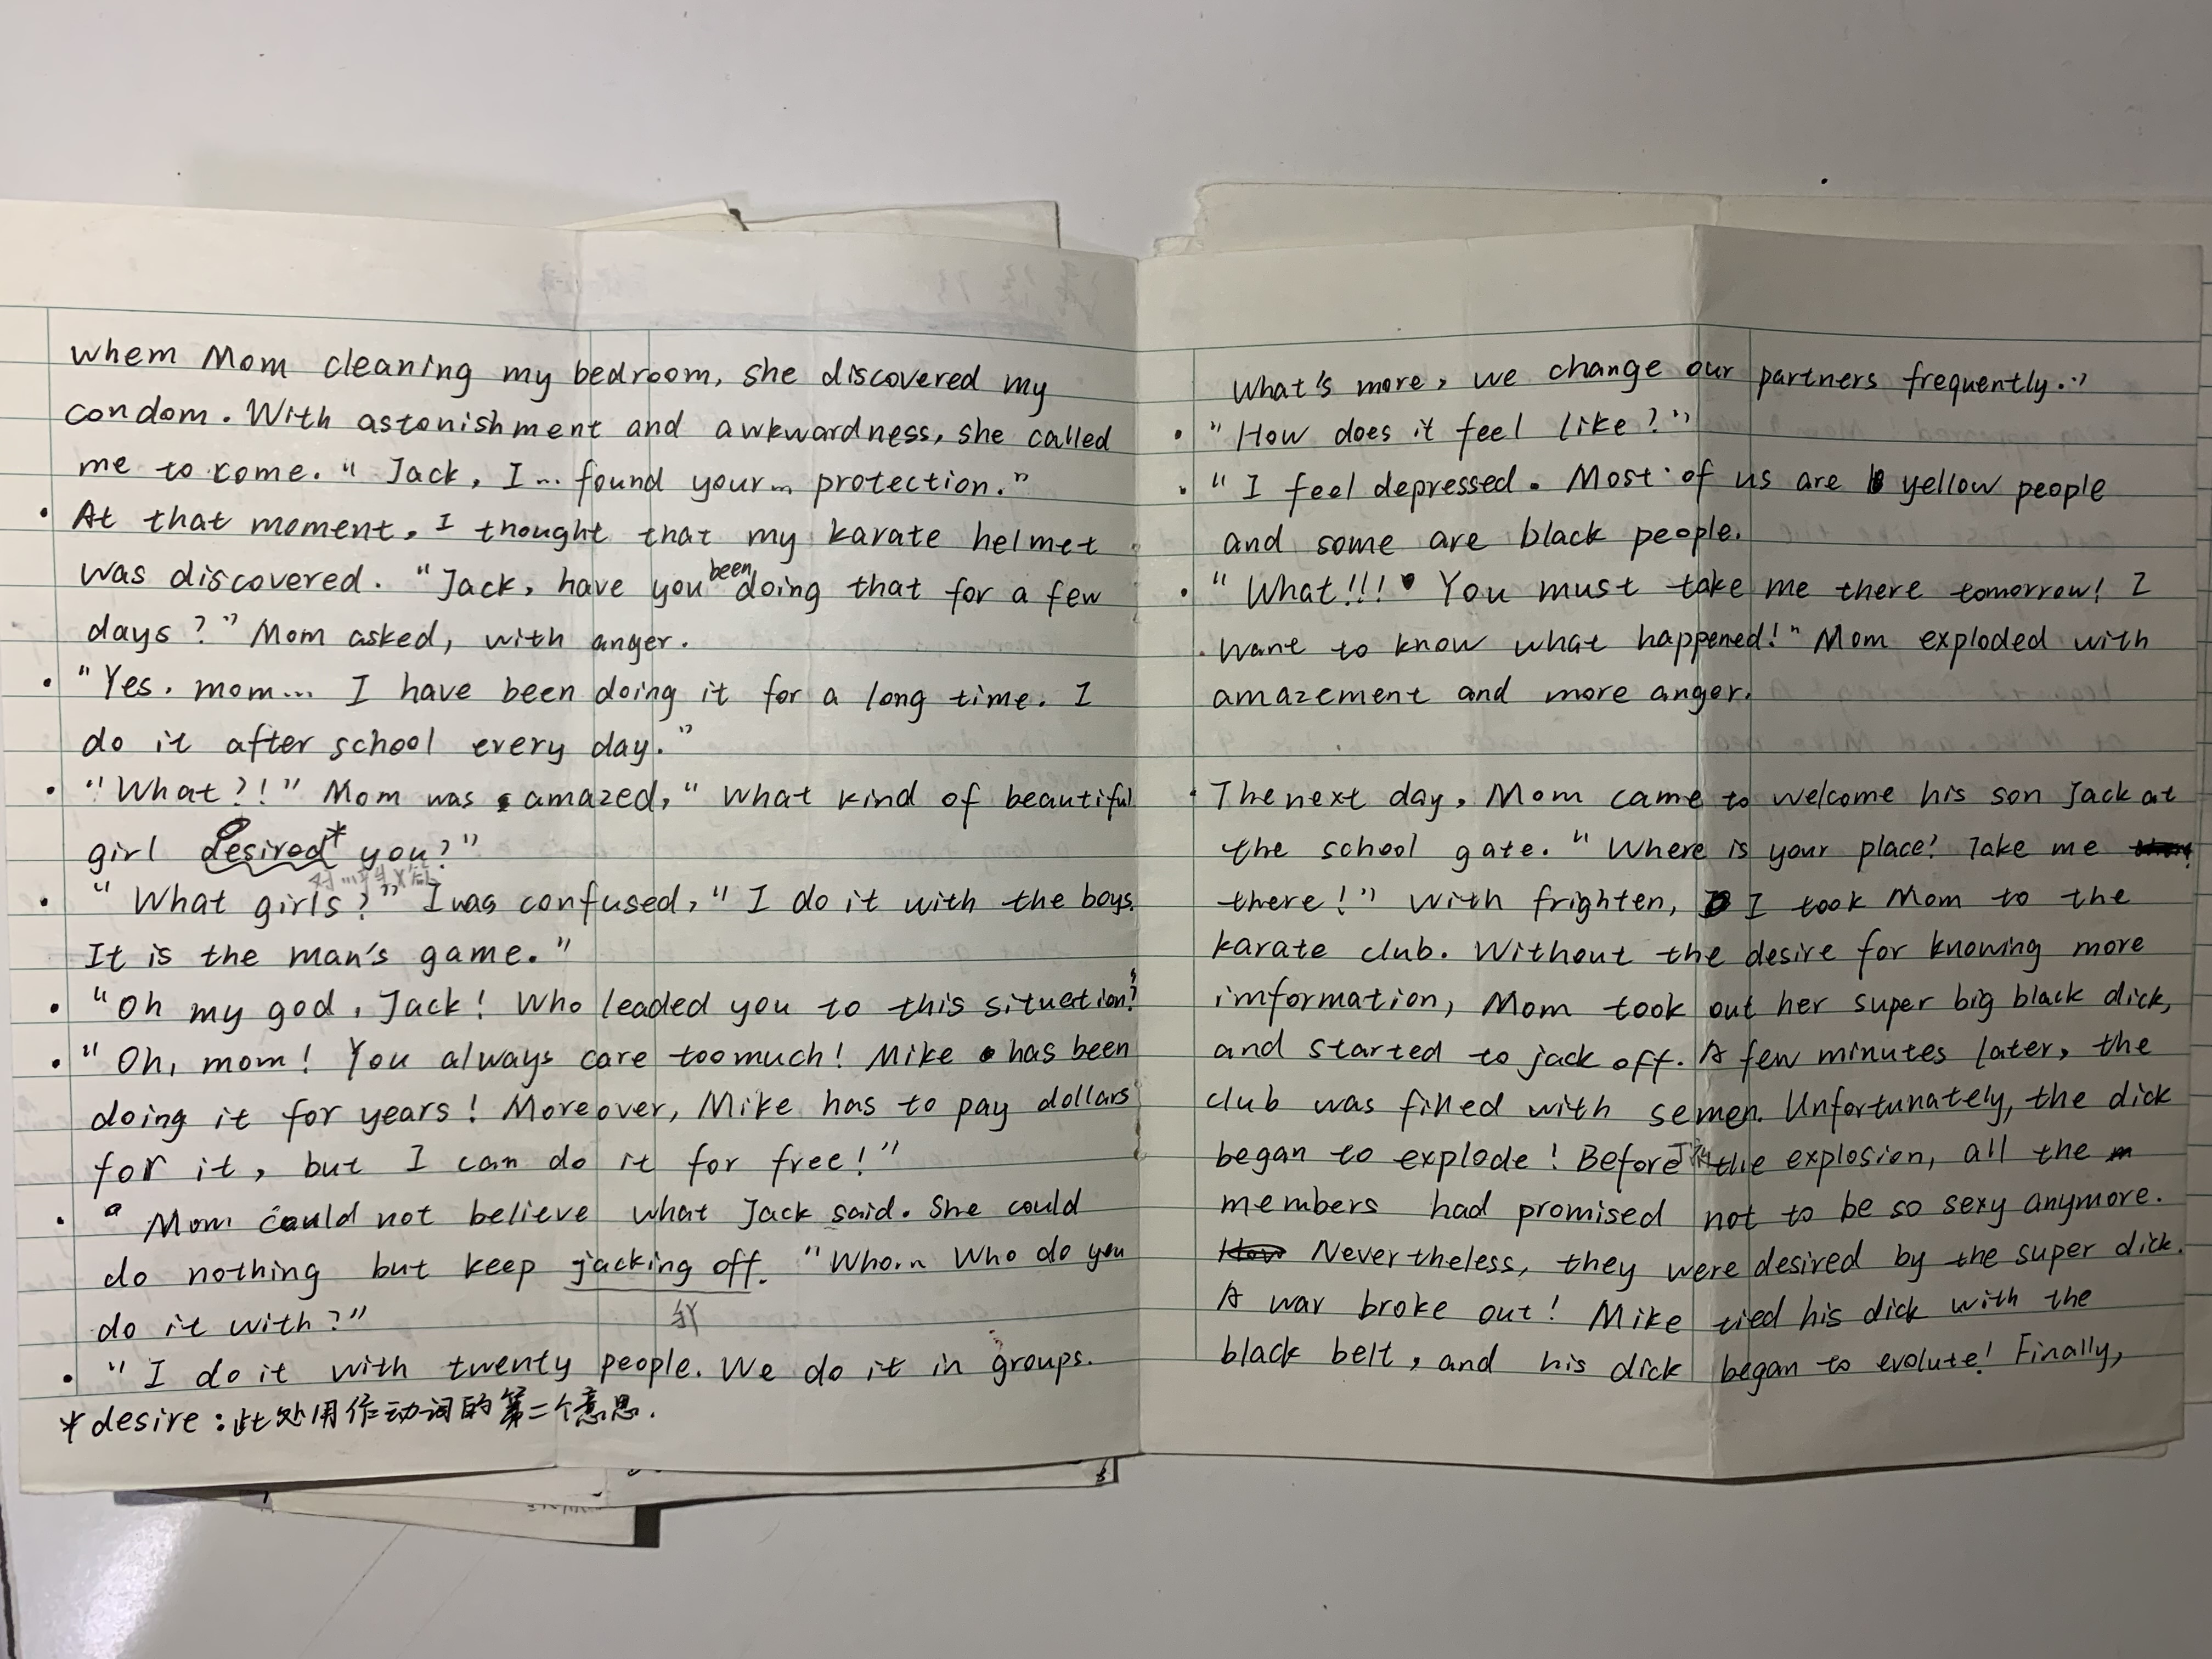 whem Mom cleaning my bedroom, she discovered my
condom. With astonishment and awkwardness, she called
me to come. " Jack, I ... found your... protection."
At that moment, I thought that my karate helmet
was discovered. "Jack, have you been doing that for a few
days ?" Mom asked, with anger.
"Yes, mom... I have been doing it for a long time. I
do it after school every day."
"What?!" Mom was amazed, " What kind of beautiful
girl desired* you?"
" What girls?" I was confused, " I do it with the boys.
It is the man's game."
"Oh my god, Jack! Who leaded you to this situation?"
" Oh, mom! You always care too much! Mike has been
doing it for years! Moreover, Mike has to pay dollars
for it, but I can do it for free!"
Mom could not believe what Jack said. She could
do nothing but keep jacking off. "Who... Who do you
do it with?"
"I do it with twenty people. We do it in groups.
*desire：此处用作动词的第二个意思.
What's more, we change our partners frequently."
" How does it feel like?"
" I feel depressed. Most of us are yellow people
and some are black people.
" What!!! You must take me there tomorrow! I
want to know what happened!" Mom exploded with
amazement and more anger.
The next day, Mom came to welcome his son Jack at
the school gate. " Where is your place? Take me
there!" With frighten, I took Mom to the
karate club. Without the desire for knowing more
imformation, Mom took out her super big black dick,
and started to jack off. A few minutes later, the
club was filled with semen. Unfortunately, the dick
began to explode! Before the explosion, all the
members had promised not to be so sexy anymore.
Nevertheless, they were desired by the super dick.
A war broke out! Mike tied his dick with the
black belt, and his dick began to evolute! Finally,